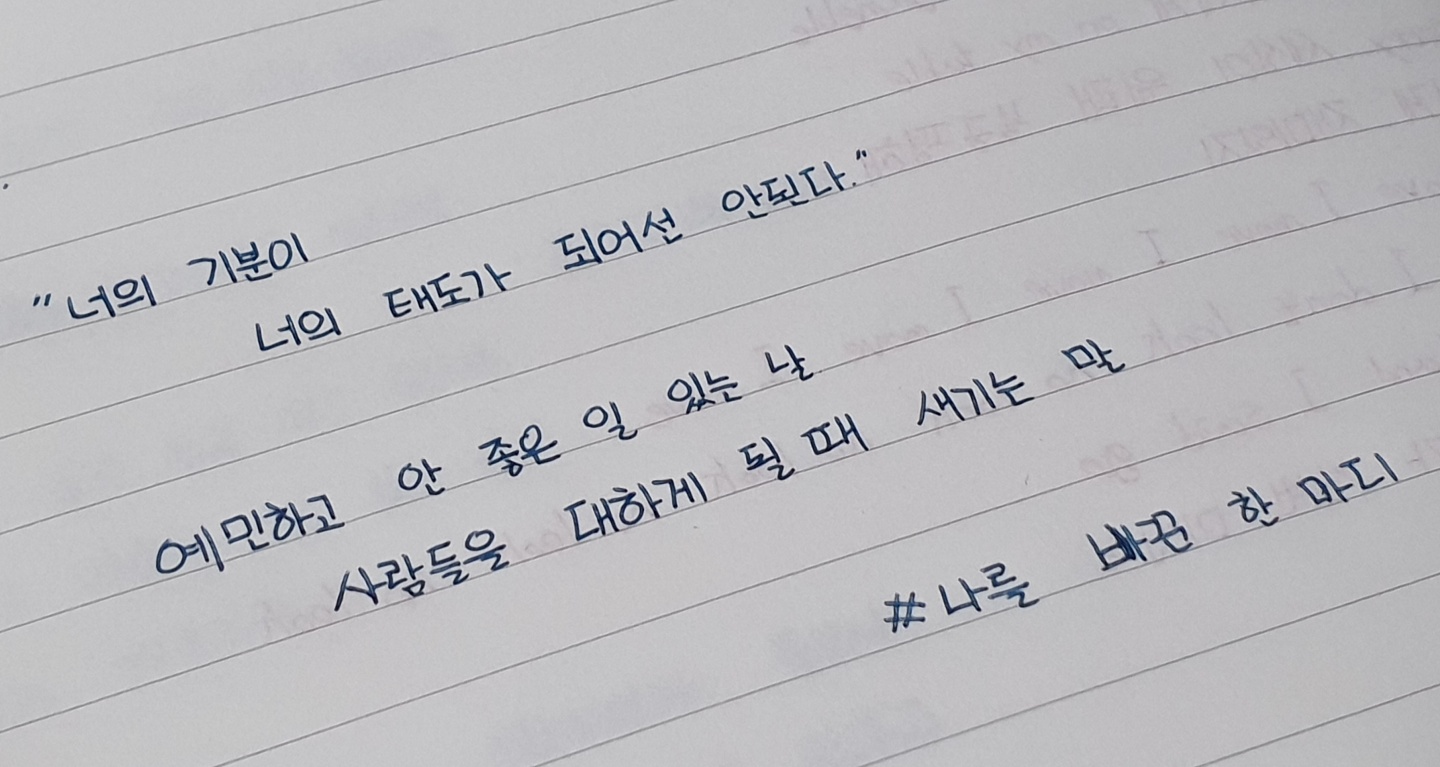 "너의 기분이
너의 태도가 되어선 안된다."
예민하고 안 좋은 일 있는 날
사람들을 대하게 될 때 새기는 말
#나를 바꾼 한 마디